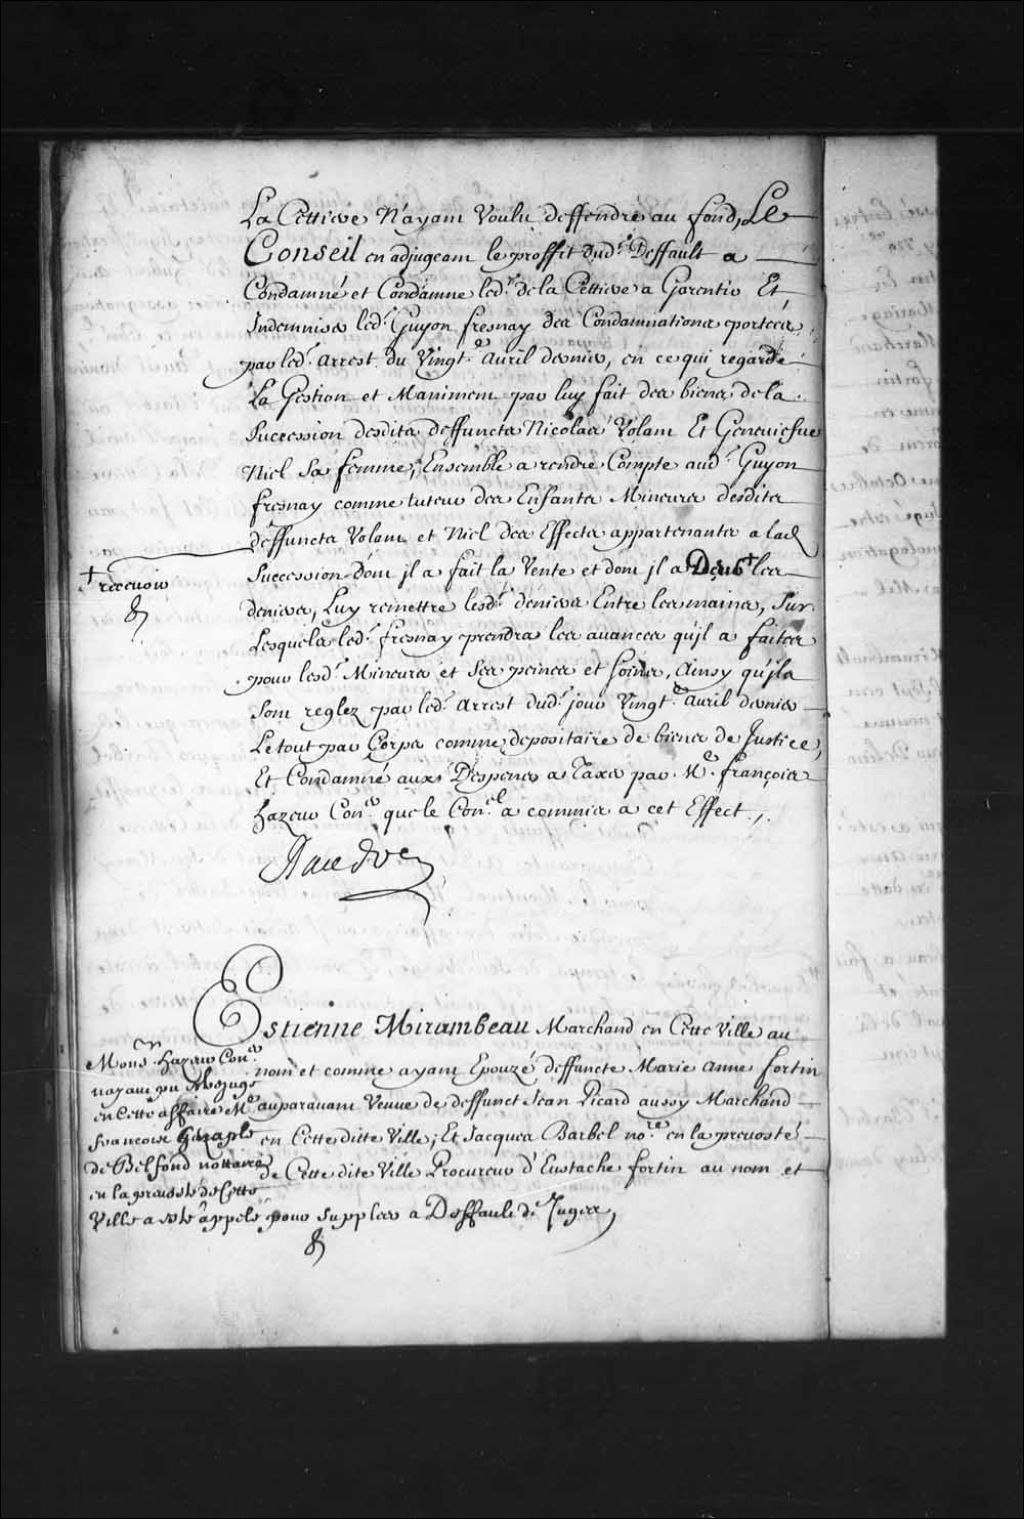 La Cettiere N'ayant Voulu deffendre au fond, Le
Conseil en adjugeant le proffit dud.t Deffault a
Condamné et Condamne led.t de la Cettiere a Garentir Et
Indemniser led.t Guyon fresnay des Condamnations portées
par led.t arrest du Vingt.e Avril dernier, en ce qui regarde
La Gestion et Maniment par luy fait des biens de la
Succession desdits deffuncts Nicolas Volant Et Geneuiefue
Niel Sa femme; Ensemble a rendre Compte aud.t Guyon
fresnay comme tuteur des Enfants Mineurs desdits
deffuncts Volant et Niel des Effects appartenants a lad
Succession dont jl a fait la Vente et dont jl a Deub + les
+ receuoir
deniers, Luy remettre lesd.ts deniers Entre les mains, Sur
Lesquels led.t fresnay prendra les auances qu'jl a faites
pour lesd.ts Mineurs et Ses peines et soins, Ainsy qu'jls
Sont reglez par led.t arrest dud.t jour Vingt.e auril dernier
Le tout par Corps comme depositaire de biens de Justice,
Et Condamné aux Despens a Taxer par M.e françois
hazeur Con.er que le Con.el a commis a cet Effect ./.
Estienne Mirambeau Marchand en Cette Ville au
nom et comme ayant Epouzé deffuncte Marie Anne fortin
auparauant Veuue de deffunct Jean Picard aussy Marchand
en Cette ditte Ville; Et Jacques Barbel no.re en la preuosté
de Cette dite Ville Procureur d'Eustache fortin au nom et
Mons.r hazeur Con.er
nayant pu
en Cette affaire M.e
francois
de Belfond nottaire
en la preuosté de Cette
Ville a esté appelé pour Suppléer a Deffault de Juges,